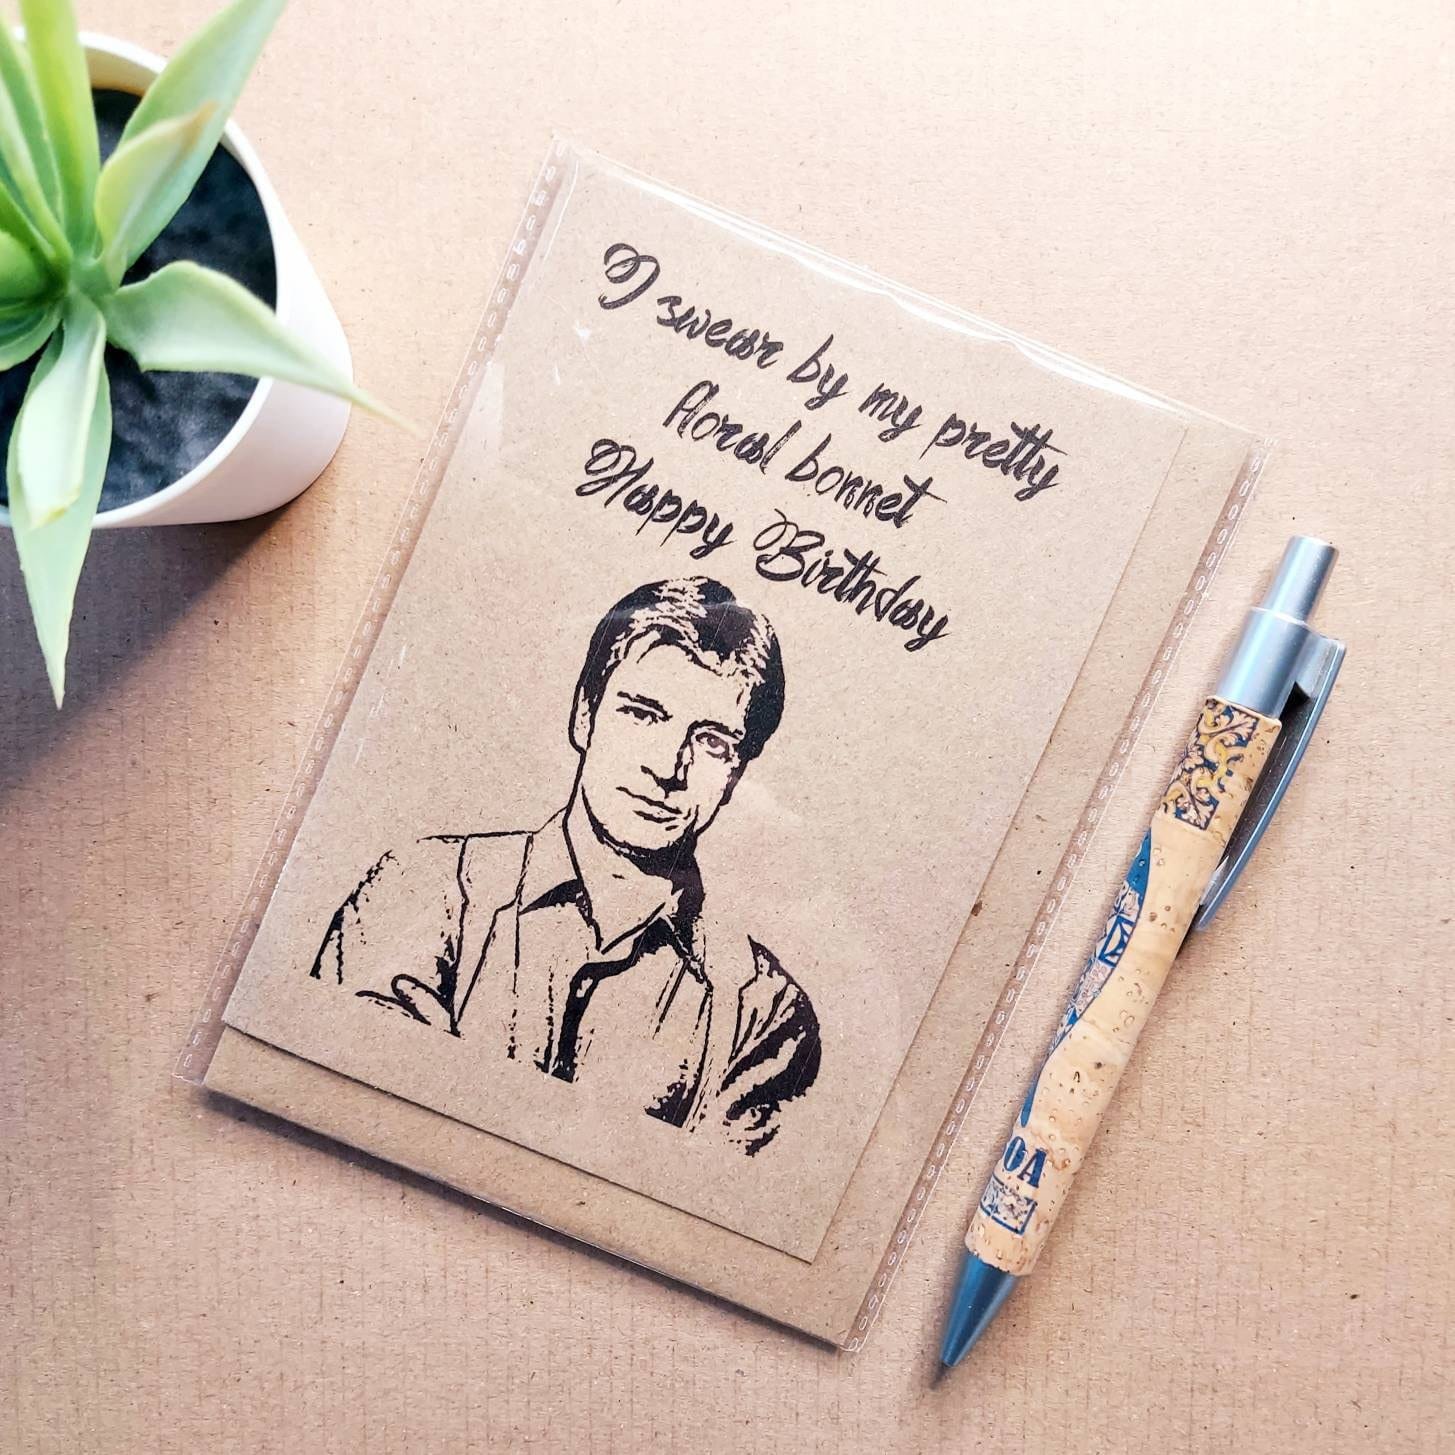 I swear by my pretty
floral bonnet
Happy Birthday
OA